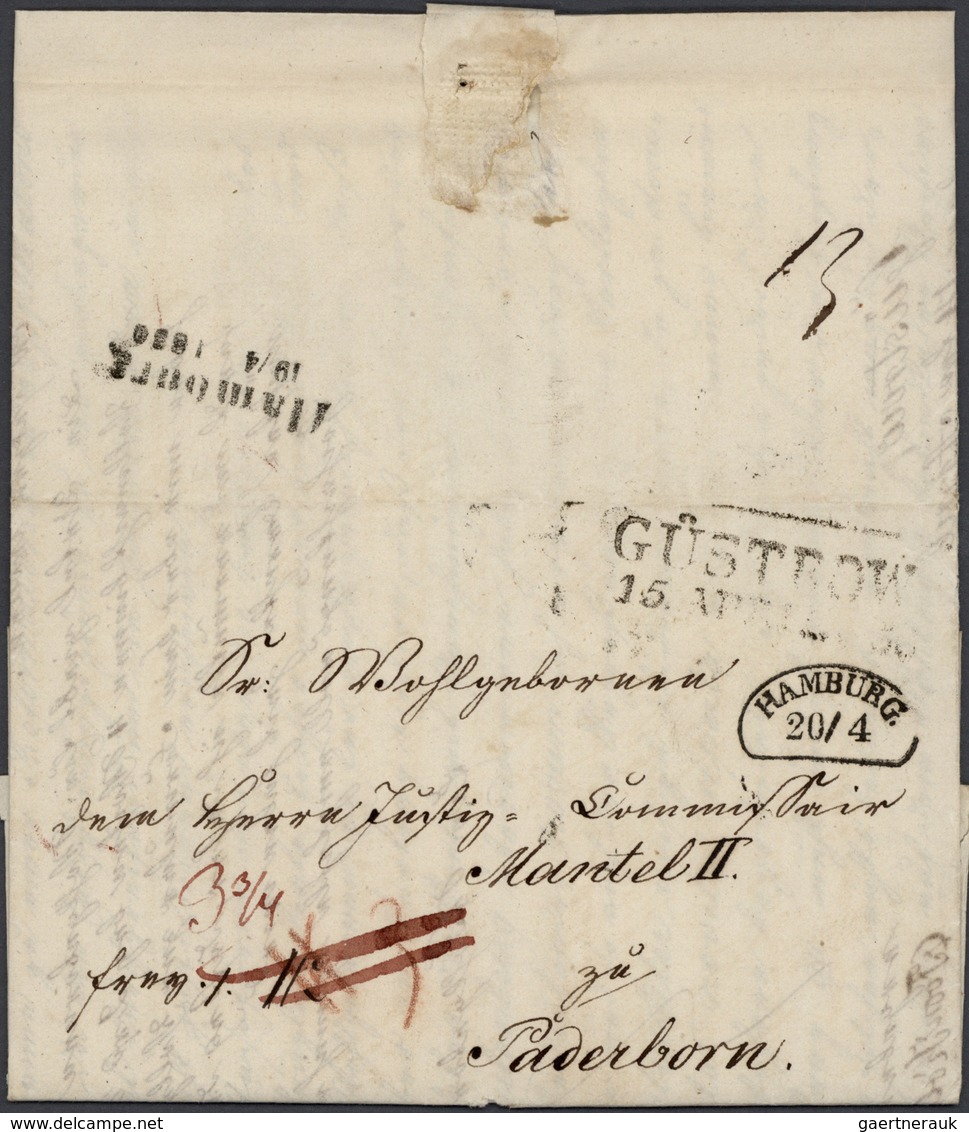 13
Hamburg
19/4 1836
GÜSTROW
15. APRIL
Sr: Wohlgebornen
HAMBURG.
20/4
dem Herrn Justiz= Commissair
Mantel II.
3 3/4
frey.
zu
Paderborn.
delcampe.net
gaertnerauk